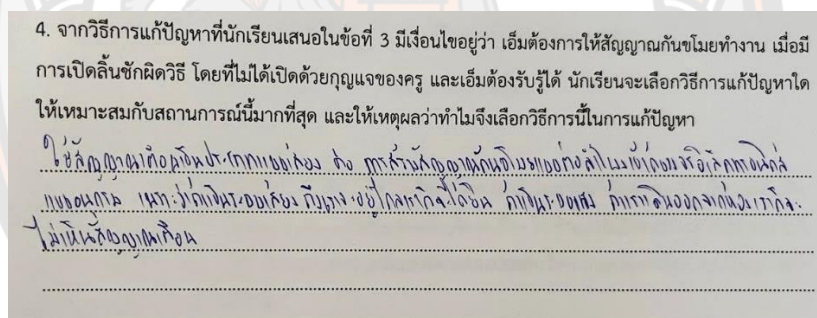 4. จากวิธีการแก้ปัญหาที่นักเรียนเสนอในข้อที่ 3 มีเงื่อนไขอยู่ว่า เอ็มต้องการให้สัญญาณกันขโมยทำงาน เมื่อมี
การเปิดลิ้นชักผิดวิธี โดยที่ไม่ได้เปิดด้วยกุญแจของครู และเอ็มต้องรับรู้ได้ นักเรียนจะเลือกวิธีการแก้ปัญหาใด
ให้เหมาะสมกับสถานการณ์นี้มากที่สุด และให้เหตุผลว่าทำไมจึงเลือกวิธีการนี้ในการแก้ปัญหา
ใช้สัญญาณเตือนเป็นประเภทแบบเสียง คือ การสร้างสัญญาณกันขโมยแบบต่อลำโพงเข้ากับวงจรอิเล็กทรอนิกส์
แบบอนุกรม เพราะว่าถ้าเป็นระบบเสียง ถึงเราจะอยู่ไกลเราก็จะได้ยิน ถ้าเป็นระบบแสง ถ้าเราเดินออกจากห้องเราก็จะ
ไม่เห็นสัญญาณเตือน